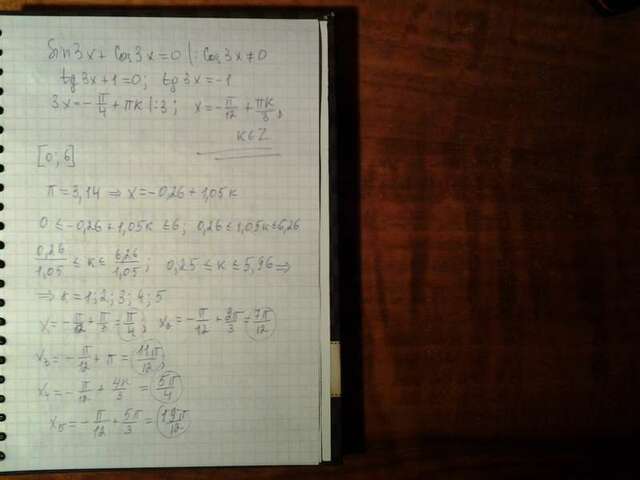 Sin3x + Cos3x = 0 |: Cos3x ≠ 0
tg3x + 1 = 0; tg3x = -1
3x = -π/4 + πk |:3; x = -π/12 + πk/3,
k∈Z
[0; 6]
π = 3,14 ⇒ x = -0,26 + 1,05k
0 ≤ -0,26 + 1,05k ≤ 6; 0,26 ≤ 1,05k ≤ 6,26
0,26/1,05 ≤ k ≤ 6,26/1,05; 0,25 ≤ k ≤ 5,96 ⇒
⇒ k = 1; 2; 3; 4; 5
x₁ = -π/12 + π/3 = π/4; x₂ = -π/12 + 2π/3 = 7π/12
x₃ = -π/12 + π = 11π/12,
x₄ = -π/12 + 4π/3 = 5π/4
x₅ = -π/12 + 5π/3 = 19π/12